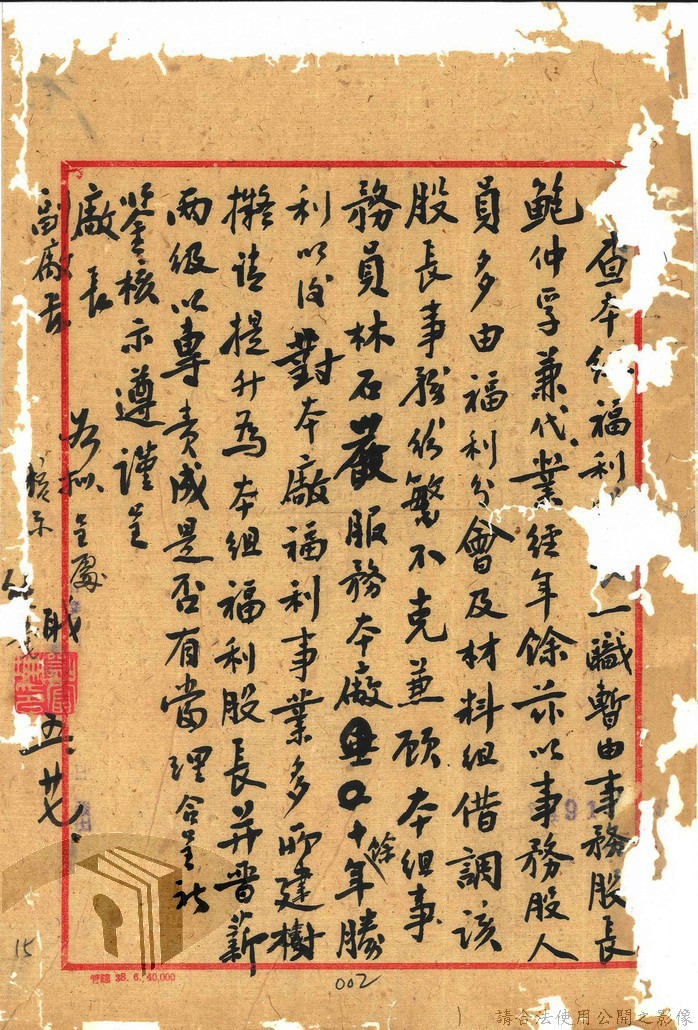 查本組福利一職暫由事務股長
鮑仲孚兼代業經年餘茲以事務股人
員多由福利分會及材料組借調該
股長事務紛繁不克兼顧本組事
務員林石巖服務本廠十餘年勝
利以後對本廠福利事業多所建樹
擬請提升為本組福利股長并晉薪
兩級以專責成是否有當理合簽祈
鑒核示遵謹呈
廠長
副廠長
核示
職
五廿七
38. 6. 40,000
002
15
請合法使用公開之影像